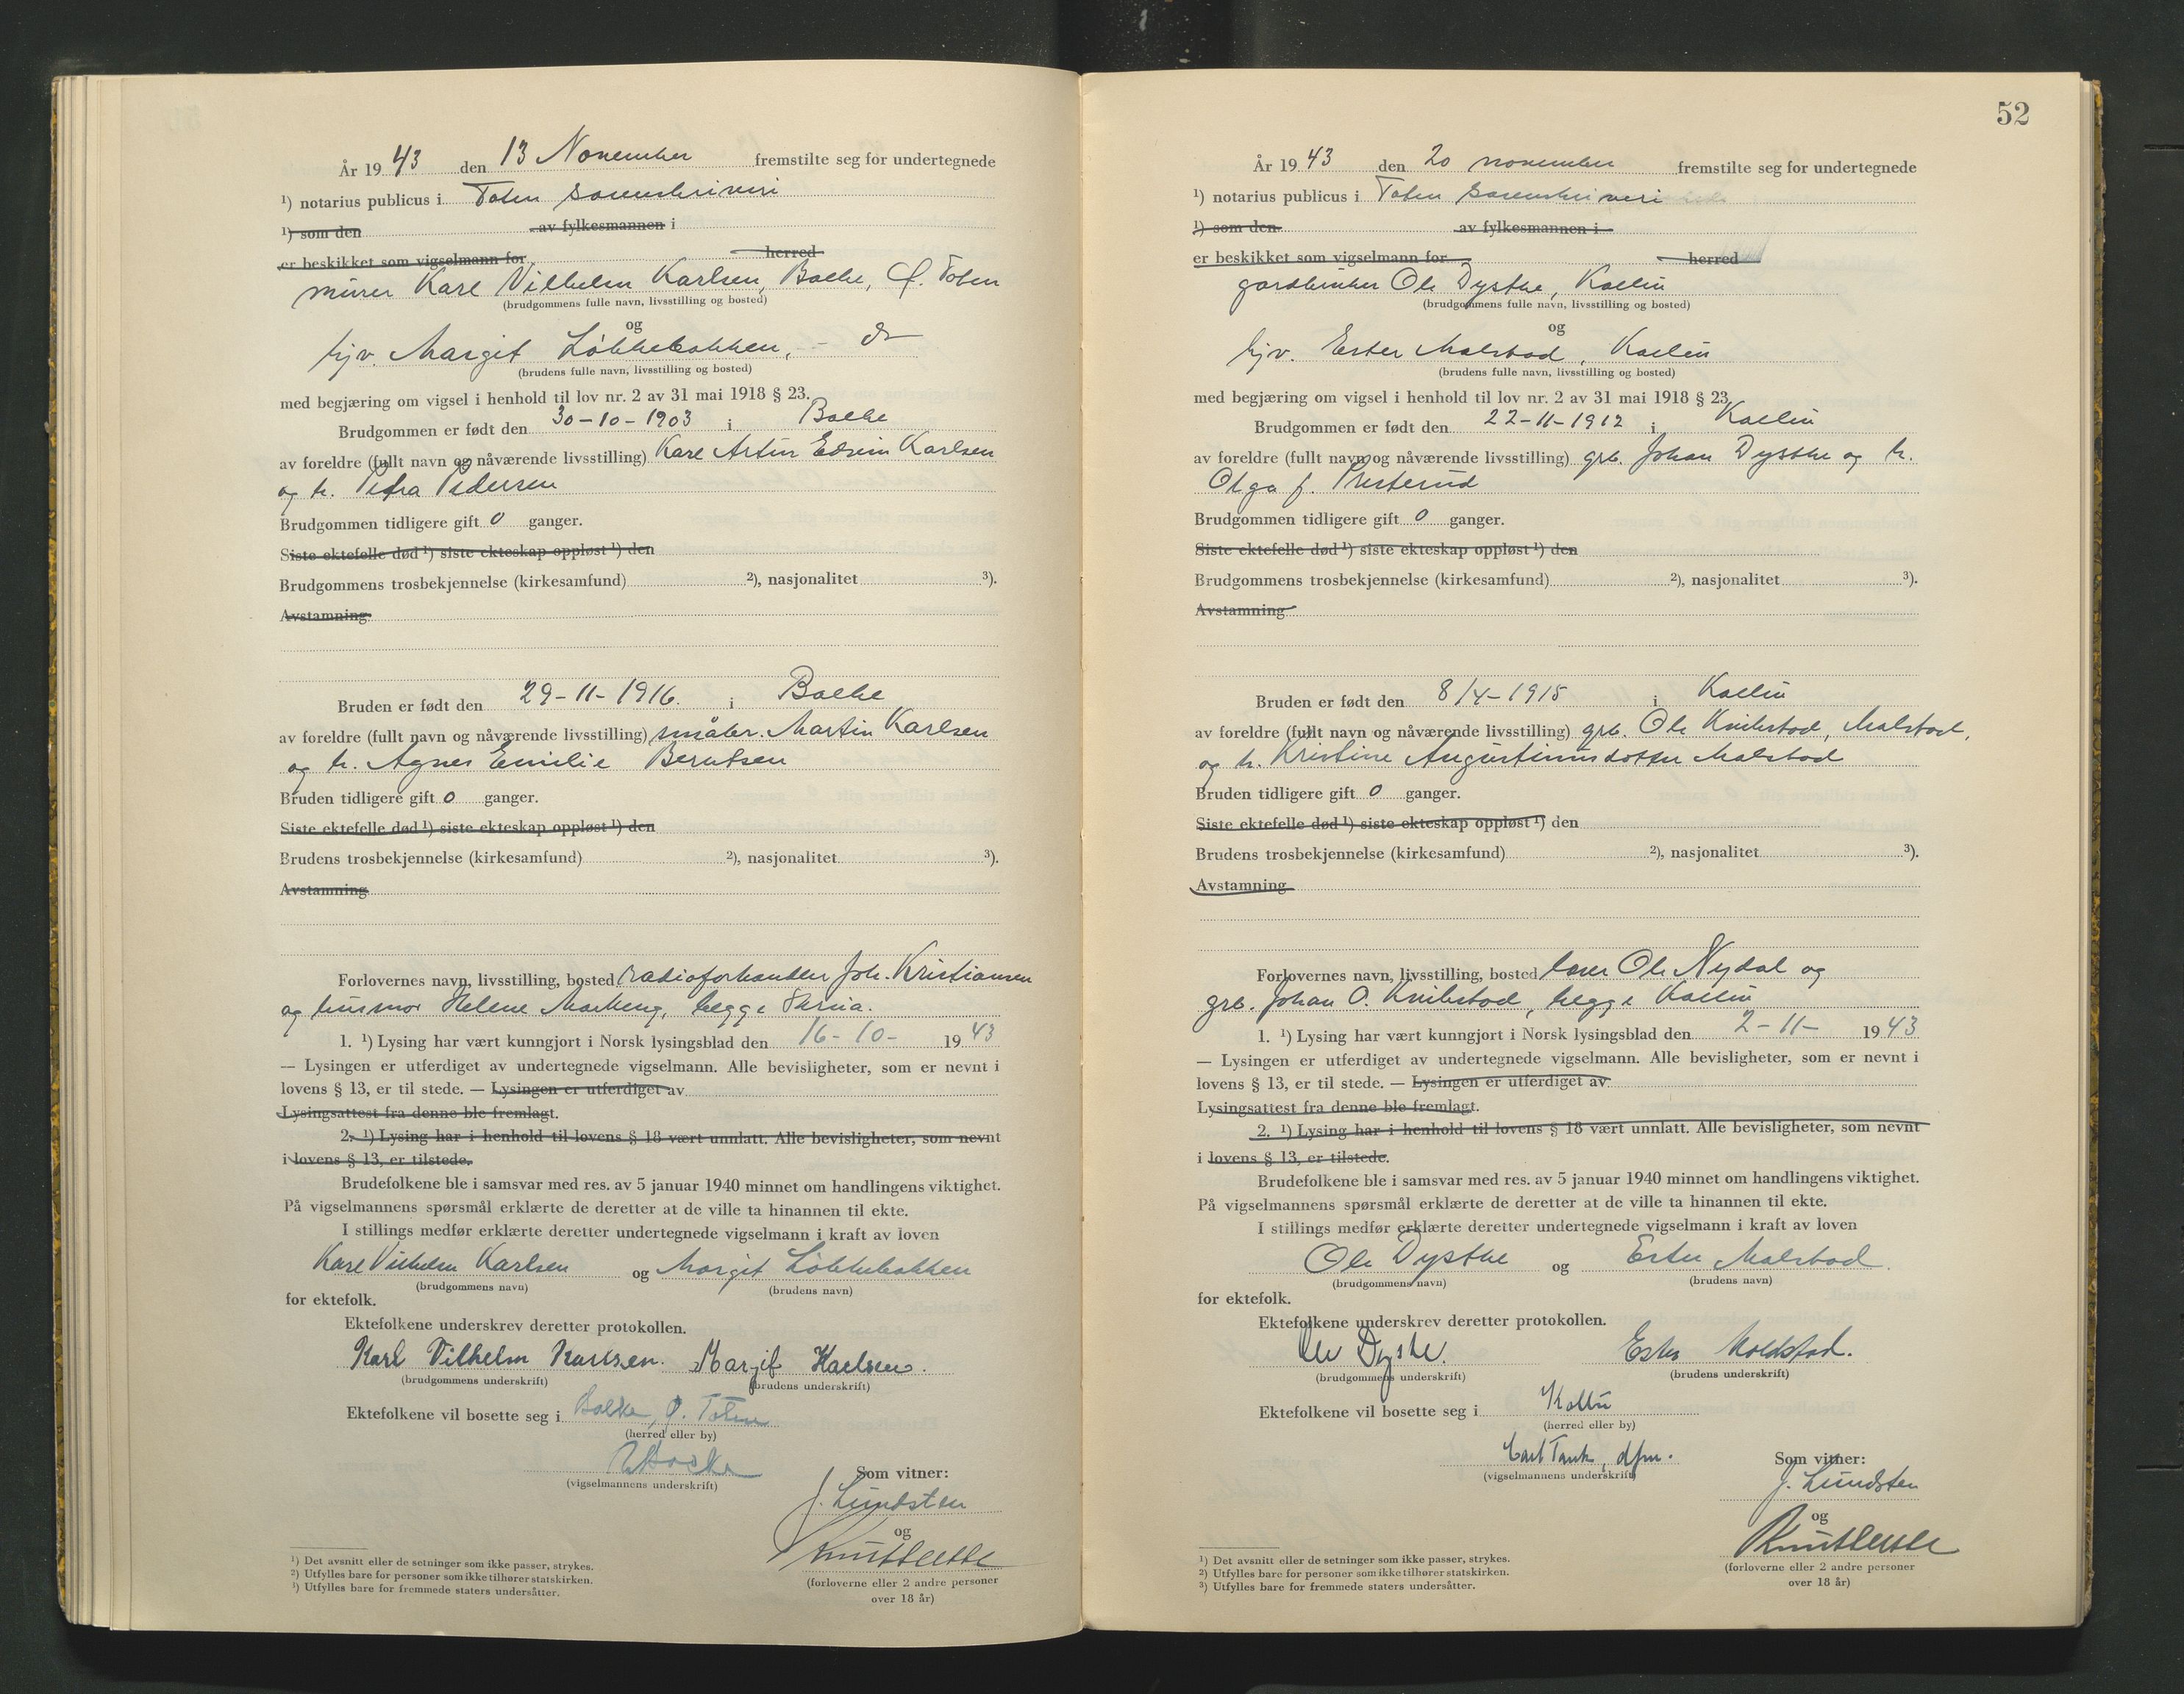 År 1943 den 13 November fremstilte seg for undertegnede
¹) notarius publicus i Toten sorenskriveri
¹) som den av fylkesmannen i
er beskikket som vigselmann for herred
murer Karl Vilhelm Karlsen, Bølke, Ø. Toten
(brudgommens fulle navn, livsstilling og bosted)
og
hjv. Margit Løkkebakken, - do
(brudens fulle navn, livsstilling og bosted)
med begjæring om vigsel i henhold til lov nr. 2 av 31 mai 1918 § 23.
Brudgommen er født den 30-10-1903 i
av foreldre (fullt navn og nåværende livsstilling) Karl Artur Edvin Karlsen
og h. Petra Pedersen
Brudgommen tidligere gift 0 ganger.
Siste ektefelle død ¹) siste ekteskap oppløst ¹) den
Brudgommens trosbekjennelse (kirkesamfund) ²), nasjonalitet ³).
Avstamning
Bruden er født den 29-11-1916. i
av foreldre (fullt navn og nåværende livsstilling) småbr. Martin Karlsen
og h. Agnes Emilie Berntsen
Bruden tidligere gift 0 ganger.
Siste ektefelle død ¹) siste ekteskap oppløst ¹) den
Brudens trosbekjennelse (kirkesamfund) ²), nasjonalitet ³).
Avstamning
Forlovernes navn, livsstilling, bosted radioforhandler Joh. Kristiansen
og husmor Helene Markeng, begge Skreia.
1. ¹) Lysing har vært kunngjort i Norsk lysingsblad den 16-10- 1943
— Lysingen er utferdiget av undertegnede vigselmann. Alle bevisligheter, som er nevnt i
lovens § 13, er til stede. — Lysingen er utferdiget av
Lysingsattest fra denne ble fremlagt.
2. ¹) Lysing har i henhold til lovens § 18 vært unnlatt. Alle bevisligheter, som nevnt
i lovens § 13, er tilstede.
Brudefolkene ble i samsvar med res. av 5 januar 1940 minnet om handlingens viktighet.
På vigselmannens spørsmål erklærte de deretter at de ville ta hinannen til ekte.
I stillings medfør erklærte deretter undertegnede vigselmann i kraft av loven
Karl Vilhelm Karlsen og Margit Løkkebakken
(brudgommens navn) (brudens navn)
for ektefolk.
Ektefolkene underskrev deretter protokollen.
Karl Vilhelm Karlsen. Margit Karlsen.
(brudgommens underskrift) (brudens underskrift)
Ektefolkene vil bosette seg i Ø. Toten
(herred eller by)
(vigselmannens underskrift)
Som vitner:
J. Lundsten
og
(forloverne eller 2 andre personer
over 18 år)
¹) Det avsnitt eller de setninger som ikke passer, strykes.
²) Utfylles bare for personer som ikke tilhører statskirken.
¹) Utfylles bare for fremmede staters undersåtter.
52
År 1943 den 20 november fremstilte seg for undertegnede
¹) notarius publicus i Toten sorenskriveri
¹) som den av fylkesmannen i
er beskikket som vigselmann for herred
gardbruker Ole Dysthe, Kolbu
(brudgommens fulle navn, livsstilling og bosted)
og
hjv. Ester Malstad, Kolbu
(brudens fulle navn, livsstilling og bosted)
med begjæring om vigsel i henhold til lov nr. 2 av 31 mai 1918 § 23.
Brudgommen er født den 22-11-1912 i Kolbu
av foreldre (fullt navn og nåværende livsstilling) grb. Johan Dysthe og h.
Olga f. Presterud
Brudgommen tidligere gift 0 ganger.
Siste ektefelle død ¹) siste ekteskap oppløst ¹) den
Brudgommens trosbekjennelse (kirkesamfund) ²), nasjonalitet ³).
Avstamning
Bruden er født den 8/4-1915 i Kolbu
av foreldre (fullt navn og nåværende livsstilling) grb. Ole Malstad,
og h. Kristine Augustinusdotter Malstad
Bruden tidligere gift 0 ganger.
Siste ektefelle død ¹) siste ekteskap oppløst ¹) den
Brudens trosbekjennelse (kirkesamfund) ²), nasjonalitet ³).
Avstamning
Forlovernes navn, livsstilling, bosted lærer Ole Nydal og
grb. Johan O. begge Kolbu
1. ¹) Lysing har vært kunngjort i Norsk lysingsblad den 2-11- 1943
— Lysingen er utferdiget av undertegnede vigselmann. Alle bevisligheter, som er nevnt i
lovens § 13, er til stede. — Lysingen er utferdiget av
Lysingsattest fra denne ble fremlagt.
2. ¹) Lysing har i henhold til lovens § 18 vært unnlatt. Alle bevisligheter, som nevnt
i lovens § 13, er tilstede.
Brudefolkene ble i samsvar med res. av 5 januar 1940 minnet om handlingens viktighet.
På vigselmannens spørsmål erklærte de deretter at de ville ta hinannen til ekte.
I stillings medfør erklærte deretter undertegnede vigselmann i kraft av loven
Ole Dysthe og Ester Malstad.
(brudgommens navn) (brudens navn)
for ektefolk.
Ektefolkene underskrev deretter protokollen.
Ole Dysthe. Ester Moldstad.
(brudgommens underskrift) (brudens underskrift)
Ektefolkene vil bosette seg i Kolbu
(herred eller by)
Carl Tank, dfm.
(vigselmannens underskrift)
Som vitner:
J. Lundsten
og
(forloverne eller 2 andre personer
over 18 år)
¹) Det avsnitt eller de setninger som ikke passer, strykes.
²) Utfylles bare for personer som ikke tilhører statskirken.
³) Utfylles bare for fremmede staters undersåtter.